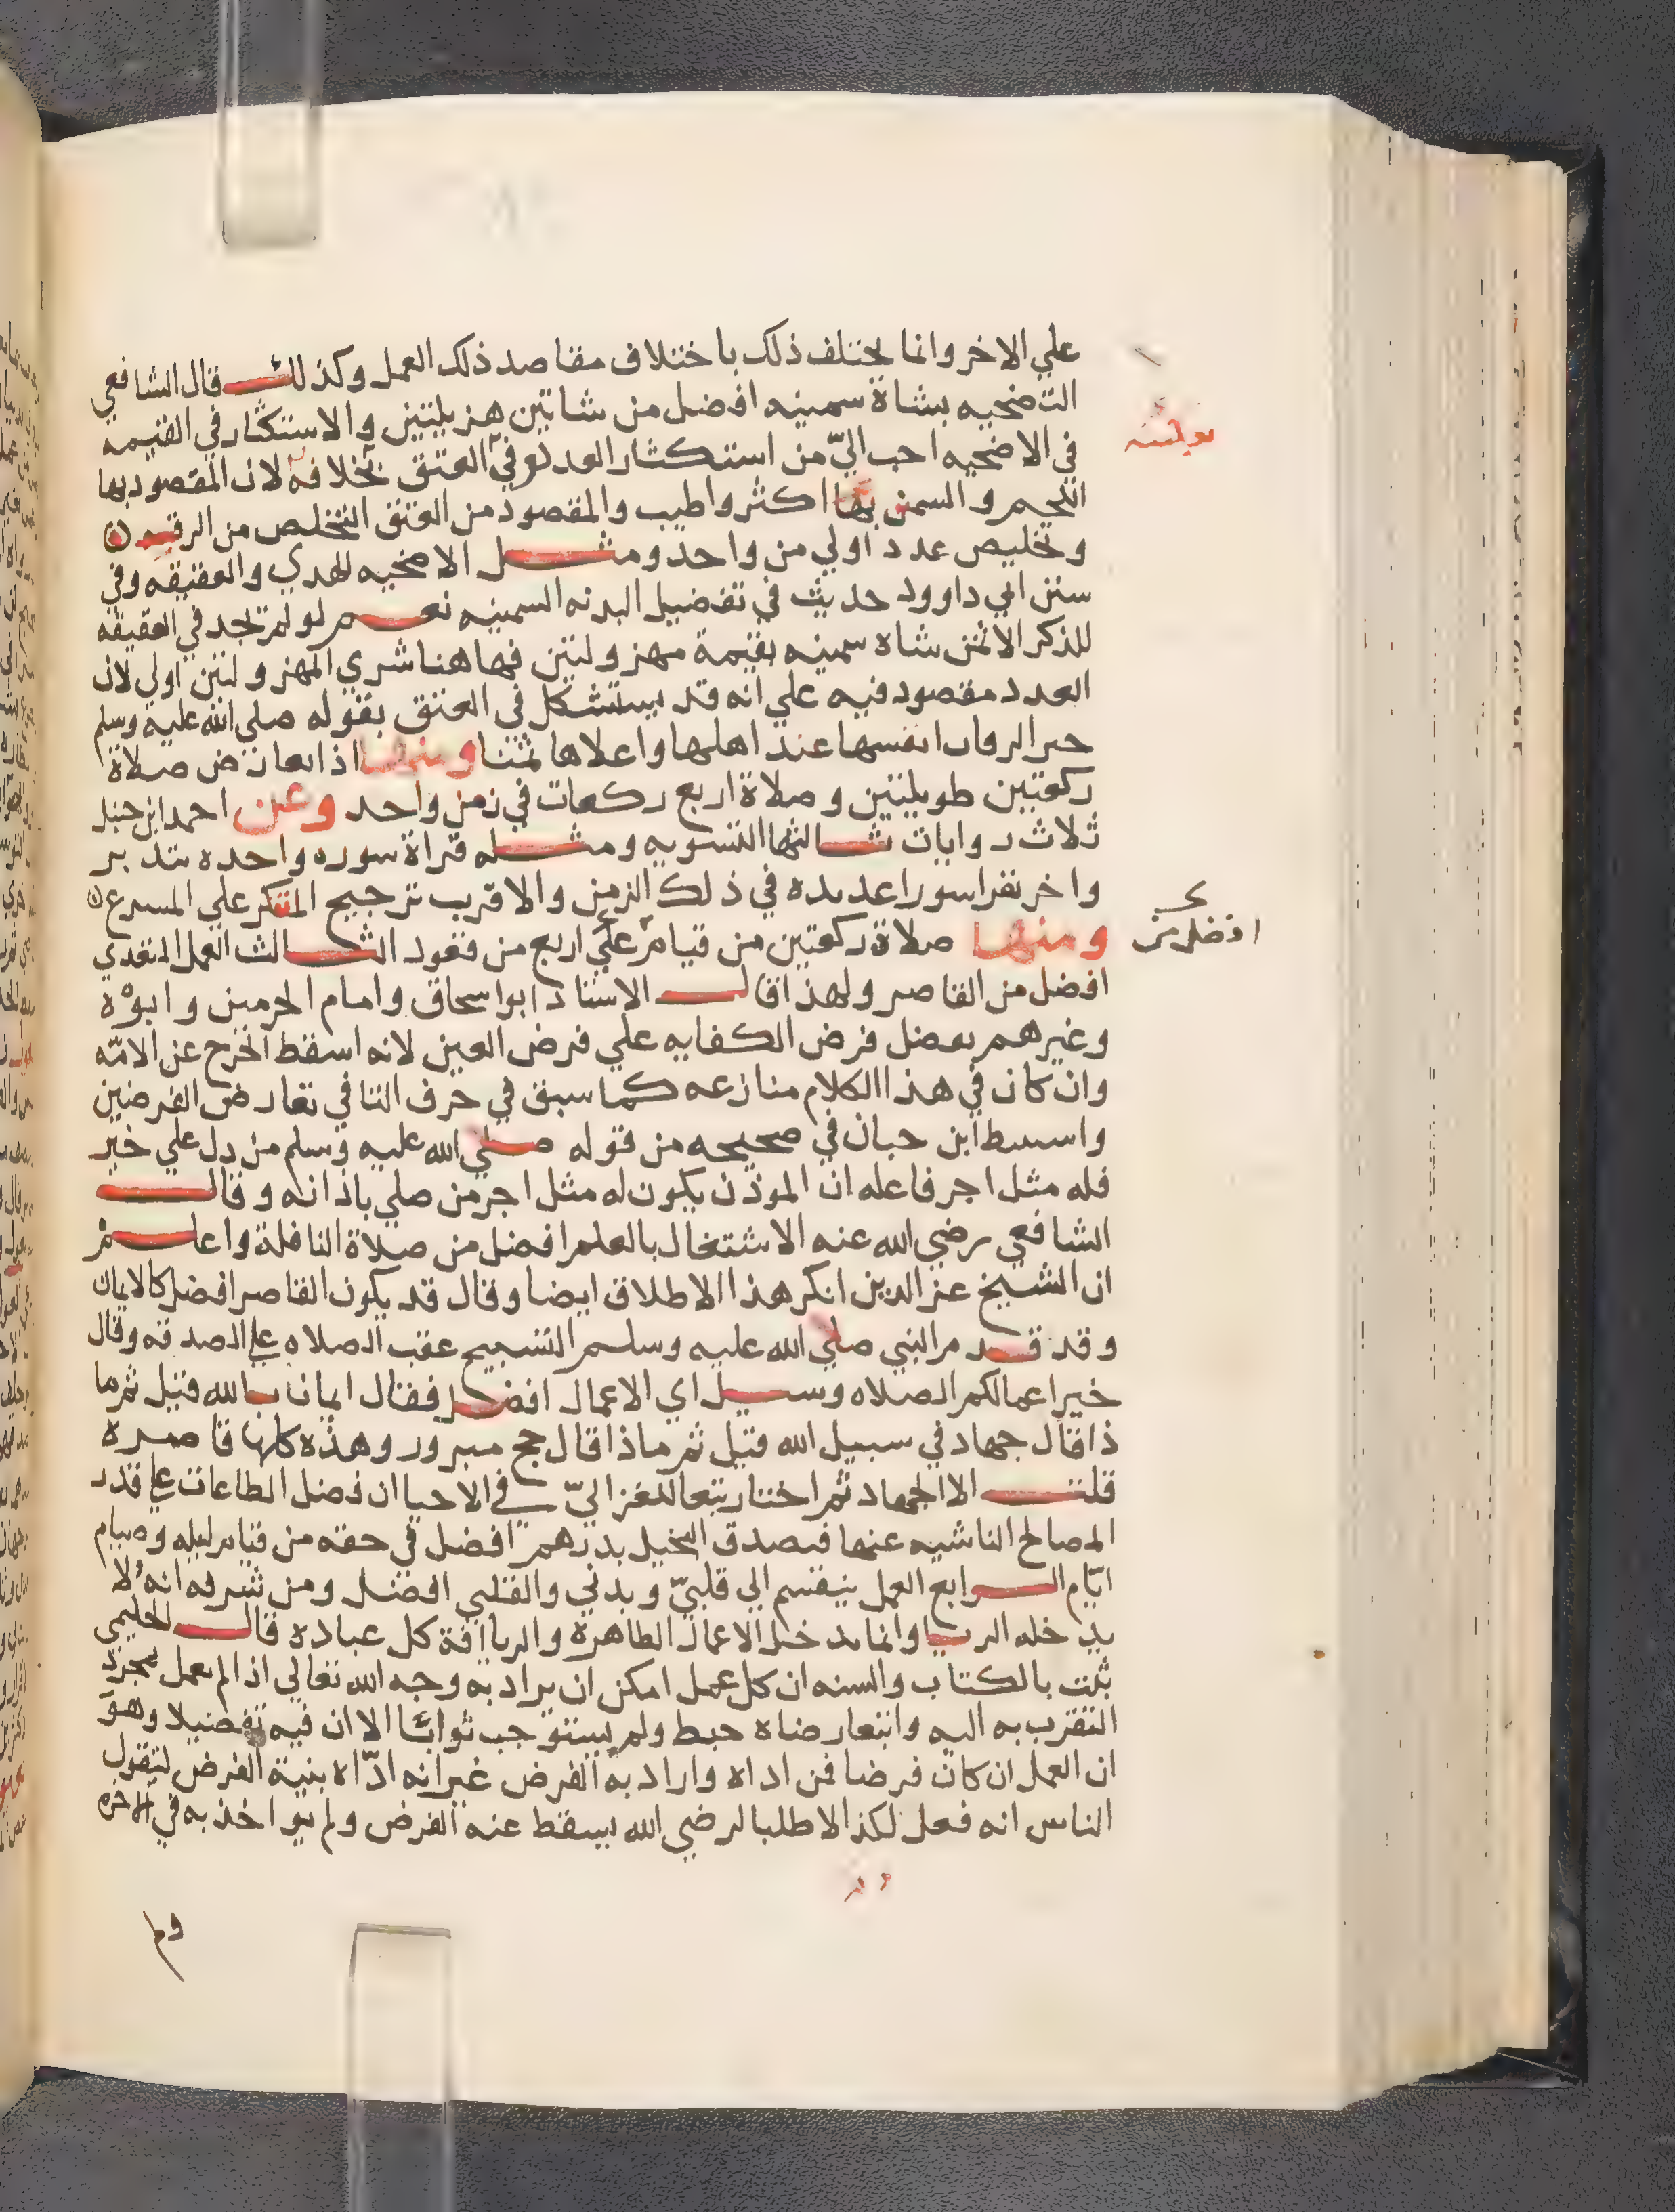 علي الاخر وانما يختلف ذلك باختلاف مقاصد ذلك العمل وكذلك قال الشافعي
التضحيه بشاة سمينه افضل من شاتين هزيلتين والاستكثار في القيمه
في الاضحيه احب اليّ من استكثار العدد وفي العتق بخلافه لان المقصود بها
اللحم والسمن بها اكثر واطيب والمقصود من العتق التخلص من الرق
وتخليص عدد اولي من واحد ومثل الاضحيه الهدي والعقيقه وفي
سنن ابي داوود حديث في تفضيل البدنه السمينه نعم لو لم تجد في العقيقه
للذكر الا ثمن شاه سمينه بقيمة مهزولتين فهاهنا شري المهزولتين اولي لان
العدد مقصود فيه علي انه قد يستشكل في العتق بقوله صلي الله عليه وسلم
خير الرقاب انفسها عند اهلها واعلاها ثمنا ومنها اذا تعارض صلاة
ركعتين طويلتين وصلاة اربع ركعات في زمن واحد وعن احمد ابن حنبل
ثلاث روايات ثالثها التسويه ومثله قراة سوره واحده بتدبر
واخر يقرا سورا عديده في ذلك الزمن والاقرب ترجيح المتفكر علي المسرع
ومنها صلاة ركعتين من قيام علي اربع من قعود الثالث العمل المتعدي
افضل من
افضل من القاصر ولهذا قال الاستاذ ابو اسحاق وامام الحرمين وابوه
وغيرهم بفضل فرض الكفايه علي فرض العين لانه اسقط الحرج عن الامّه
وان كان في هذا الكلام منازعه كما سبق في حرف التا في تعارض الفرضين
واستنبط ابن حبان في صحيحه من قوله صلي الله عليه وسلم من دل علي خير
فله مثل اجر فاعله ان الموذن يكون له مثل اجر من صلي باذانه وقال
الشافعي رضي الله عنه الاشتغال بالعلم افضل من صلاة النافلة واعلم
ان الشيخ عز الدين انكر هذا الاطلاق ايضا وقال قد يكون القاصر افضل كالايمان
وقد قدم النبي صلي الله عليه وسلم التسبيح عقب الصلاه علي الصدقه وقال
خير اعمالكم الصلاه وسيل اي الاعمال افضل فقال ايمان بالله قيل ثم ما
ذا قال جهاد في سبيل الله قيل ثم ماذا قال حج مبرور وهذه كلها قاصرة
قلت الا الجهاد ثم اختار تبعا للغزاليّ في الاحيا ان فضل الطاعات علي قدر
المصالح الناشيه عنها فتصدق البخيل بدرهم افضل في حقه من قيام ليله وصيام
ايّام الرابع العمل ينقسم الي قلبيّ وبدني والقلبي افضل ومن شرفه انه لا
يدخله الريا وانما يدخل الاعمال الظاهرة والريا افة كل عبادة قال الحليمي
ثبت بالكتاب والسنه ان كل عمل امكن ان يراد به وجه الله تعالي اذا لم يعمل لمجرد
التقرب به اليه وابتغا رضاه حبط ولم يستوجب ثوابا الا ان فيه تفضيلا وهو
ان العمل ان كان فرضا فمن اداه واراد به الفرض غير انه ادّاه بنية الفرض ليقول
الناس انه فعل كذا لا طلبا لرضي الله يسقط عنه الفرض ولم يواخذ به في الاخره
ولم